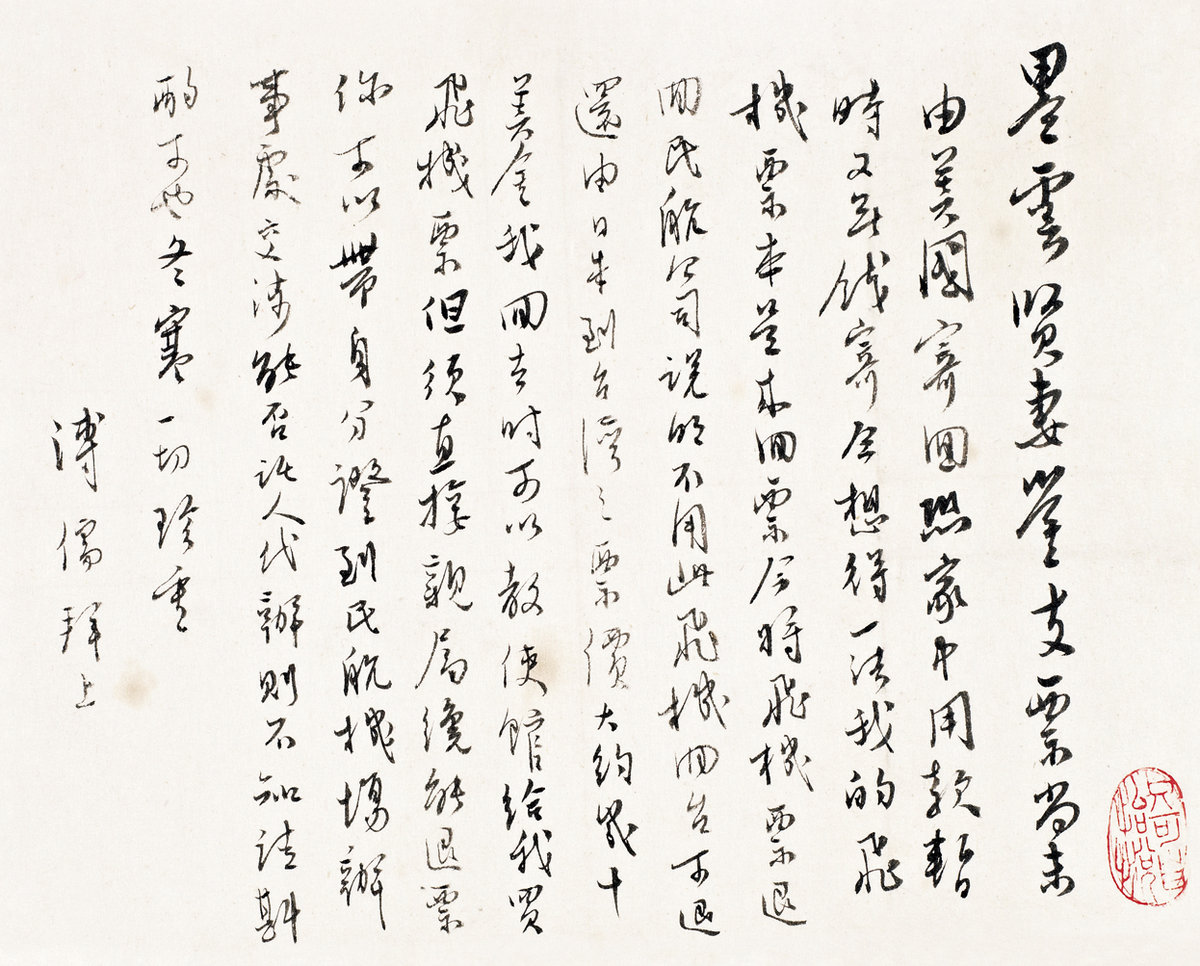 墨雲賢妻鑒支票尚未
由美國寄回恐家中用款暫
時又無錢寄今想得一法我的飛
機票本是來回票今將飛機票退
回民航公司說明不用此飛機回台可退
還由日本到台灣之票價大約幾十
美金我回去时可以教使館給我買
飛機票但須直接親屬纔能退票
你可以帶身分證到民航機場辦
事處交涉能否託人代辦則不知請斟
酌可也冬寒一切珍重
溥儒拜上
只可自怡悅